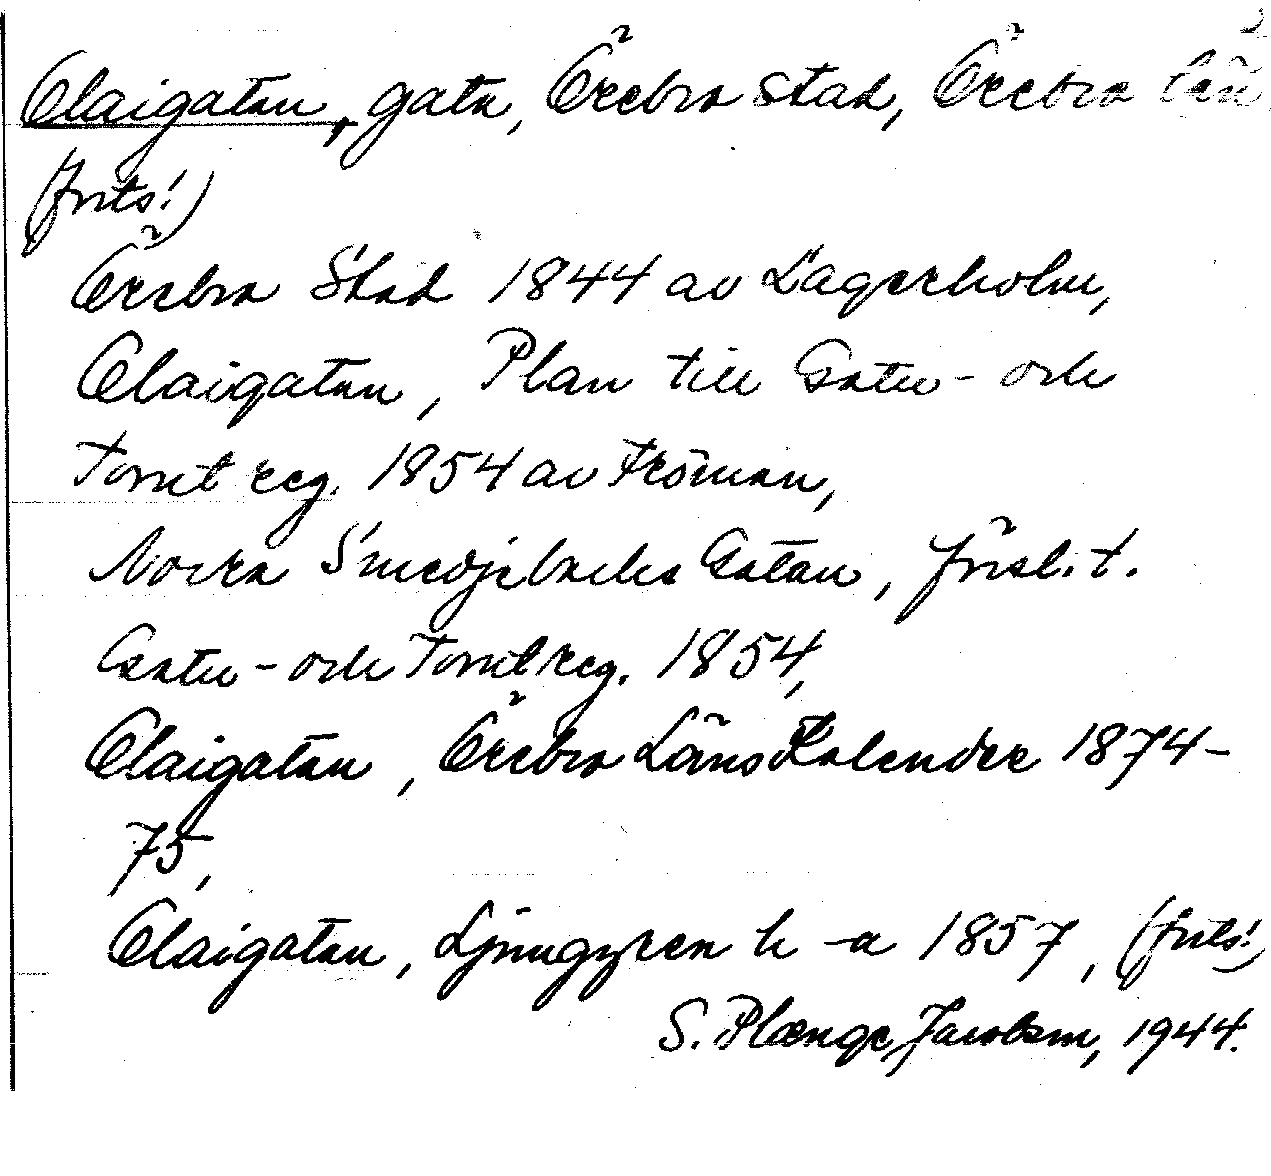 Olaigatan, gata, Örebro stad, Örebro län
(forts!)
Örebro Stad 1844 av Lagerholm,
Olaigatan, Plan till Gatu- och
Tomt reg. 1854 av Fröman,
Norra Smedjebacks Gatan, förslt.
Gatu- och Tomtreg. 1854,
Olaigatan, Örebro Läns Kalender 1874-
75,
Olaigatan, Ljunggren h -a 1857, (forts!)
S. Plænge Jacobson, 1944.